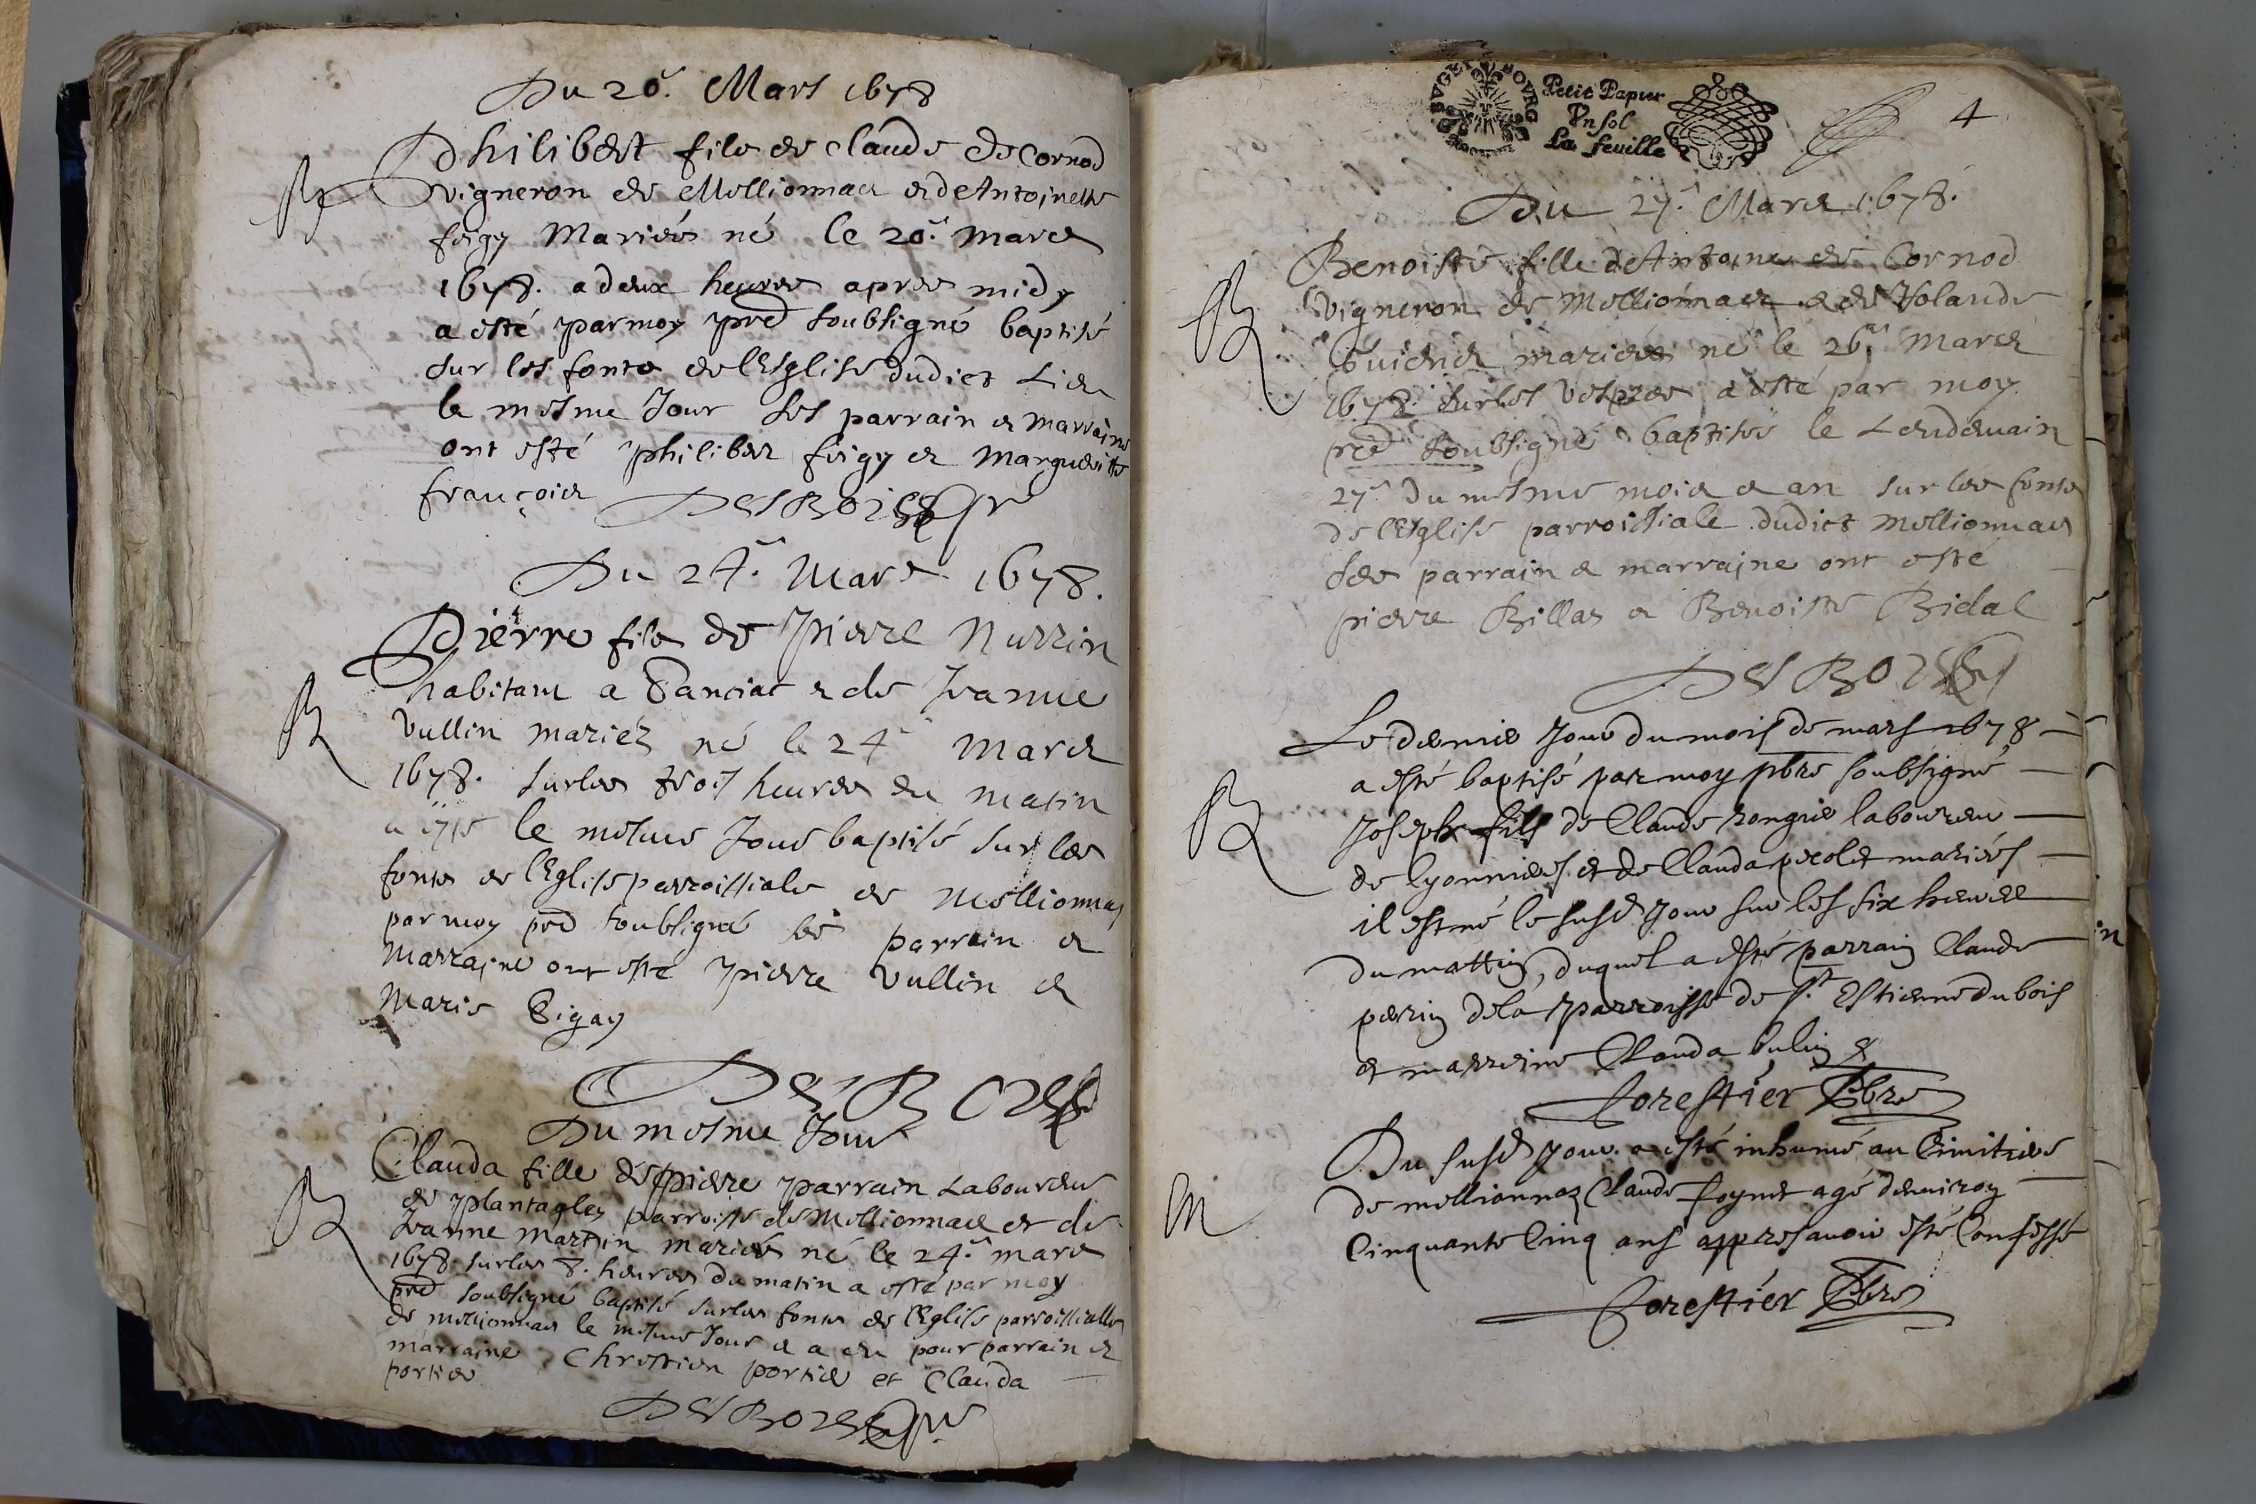 Du 20.e Mars 1678
B Philibert fils de Claude de Cornod
vigneron de Mellionnas et de Antoinette
feigy Mariés né le 20.e Mars
1678. a deux heures apres midy
a esté par moy pred soubsigné baptisé
sur les fonts de l'Esglise dudict Lieu
le mesme Jour ses parrain et marraine
ont esté philibert feigy et Margueritte
françois DesBois
Du 24.e Mars 1678.
Pierre fils de pierre Nurrin
habitant a Sanciat et de Jeanne
B Vullin mariéz né le 24.e Mars
1678. sur les trois heures du matin
a esté le mesme Jour baptisé sur les
fonts de l'Eglise parroissiale de Mellionnas
par moy pred soubsigné ses parrain et
Marrajne ont esté pierre Vullin et
Marie Gigay
DesBois
Du mesme Jour
B Clauda fille de pierre parrain Laboureur
de plantaglay parroisse de Mellionnas et de
Jeanne Martin mariés né le 24.e mars
1678. sur les 8. heures du matin a esté par moy
pred soubsigné baptisé sur les fonts de l'Eglise parroissialle
de mellionnas le mesme Jour et a eu pour parrain et
marraine Chrestien portier et Clauda
portier
DesBois
BVGEY BOVRG
Petit Papier
Vn sol
La feuille
4
Du 27.e Mars 1678.
B Benoiste fille de Antoine de Cornod
vigneron de Mellionnas et de Yolande
Guienet mariés né le 26.e Mars
1678. sur les vespres a esté par moy
pred soubsigné baptisée le Lendemain
27.e du mesme mois et an sur les fonts
de l'Esglise parroissiale dudict Mellionnas
ses parrain et marrajne ont esté
pierre Billas et Benoiste Bidal
DesBois
Le dernier Jour du mois de mars 1678
a esté baptisé par moy pbre soubsigné
B Joseph fils de Claude rongier laboureur
de lyonnieres et de Clauda picolet mariés
il est né le susd Jour sur les six heures
du mattin, duquel a esté parrain Claude
perrin de la parroisse de St Estienne du bois
et marreine Clauda Vulin
forestier Pbre
Du susd Jour a esté inhumé au Cimitiere
M de mellionnaz Claude foynet agé d'environ
Cinquante Cinq ans appres avoir esté Confessé
forestier Pbre